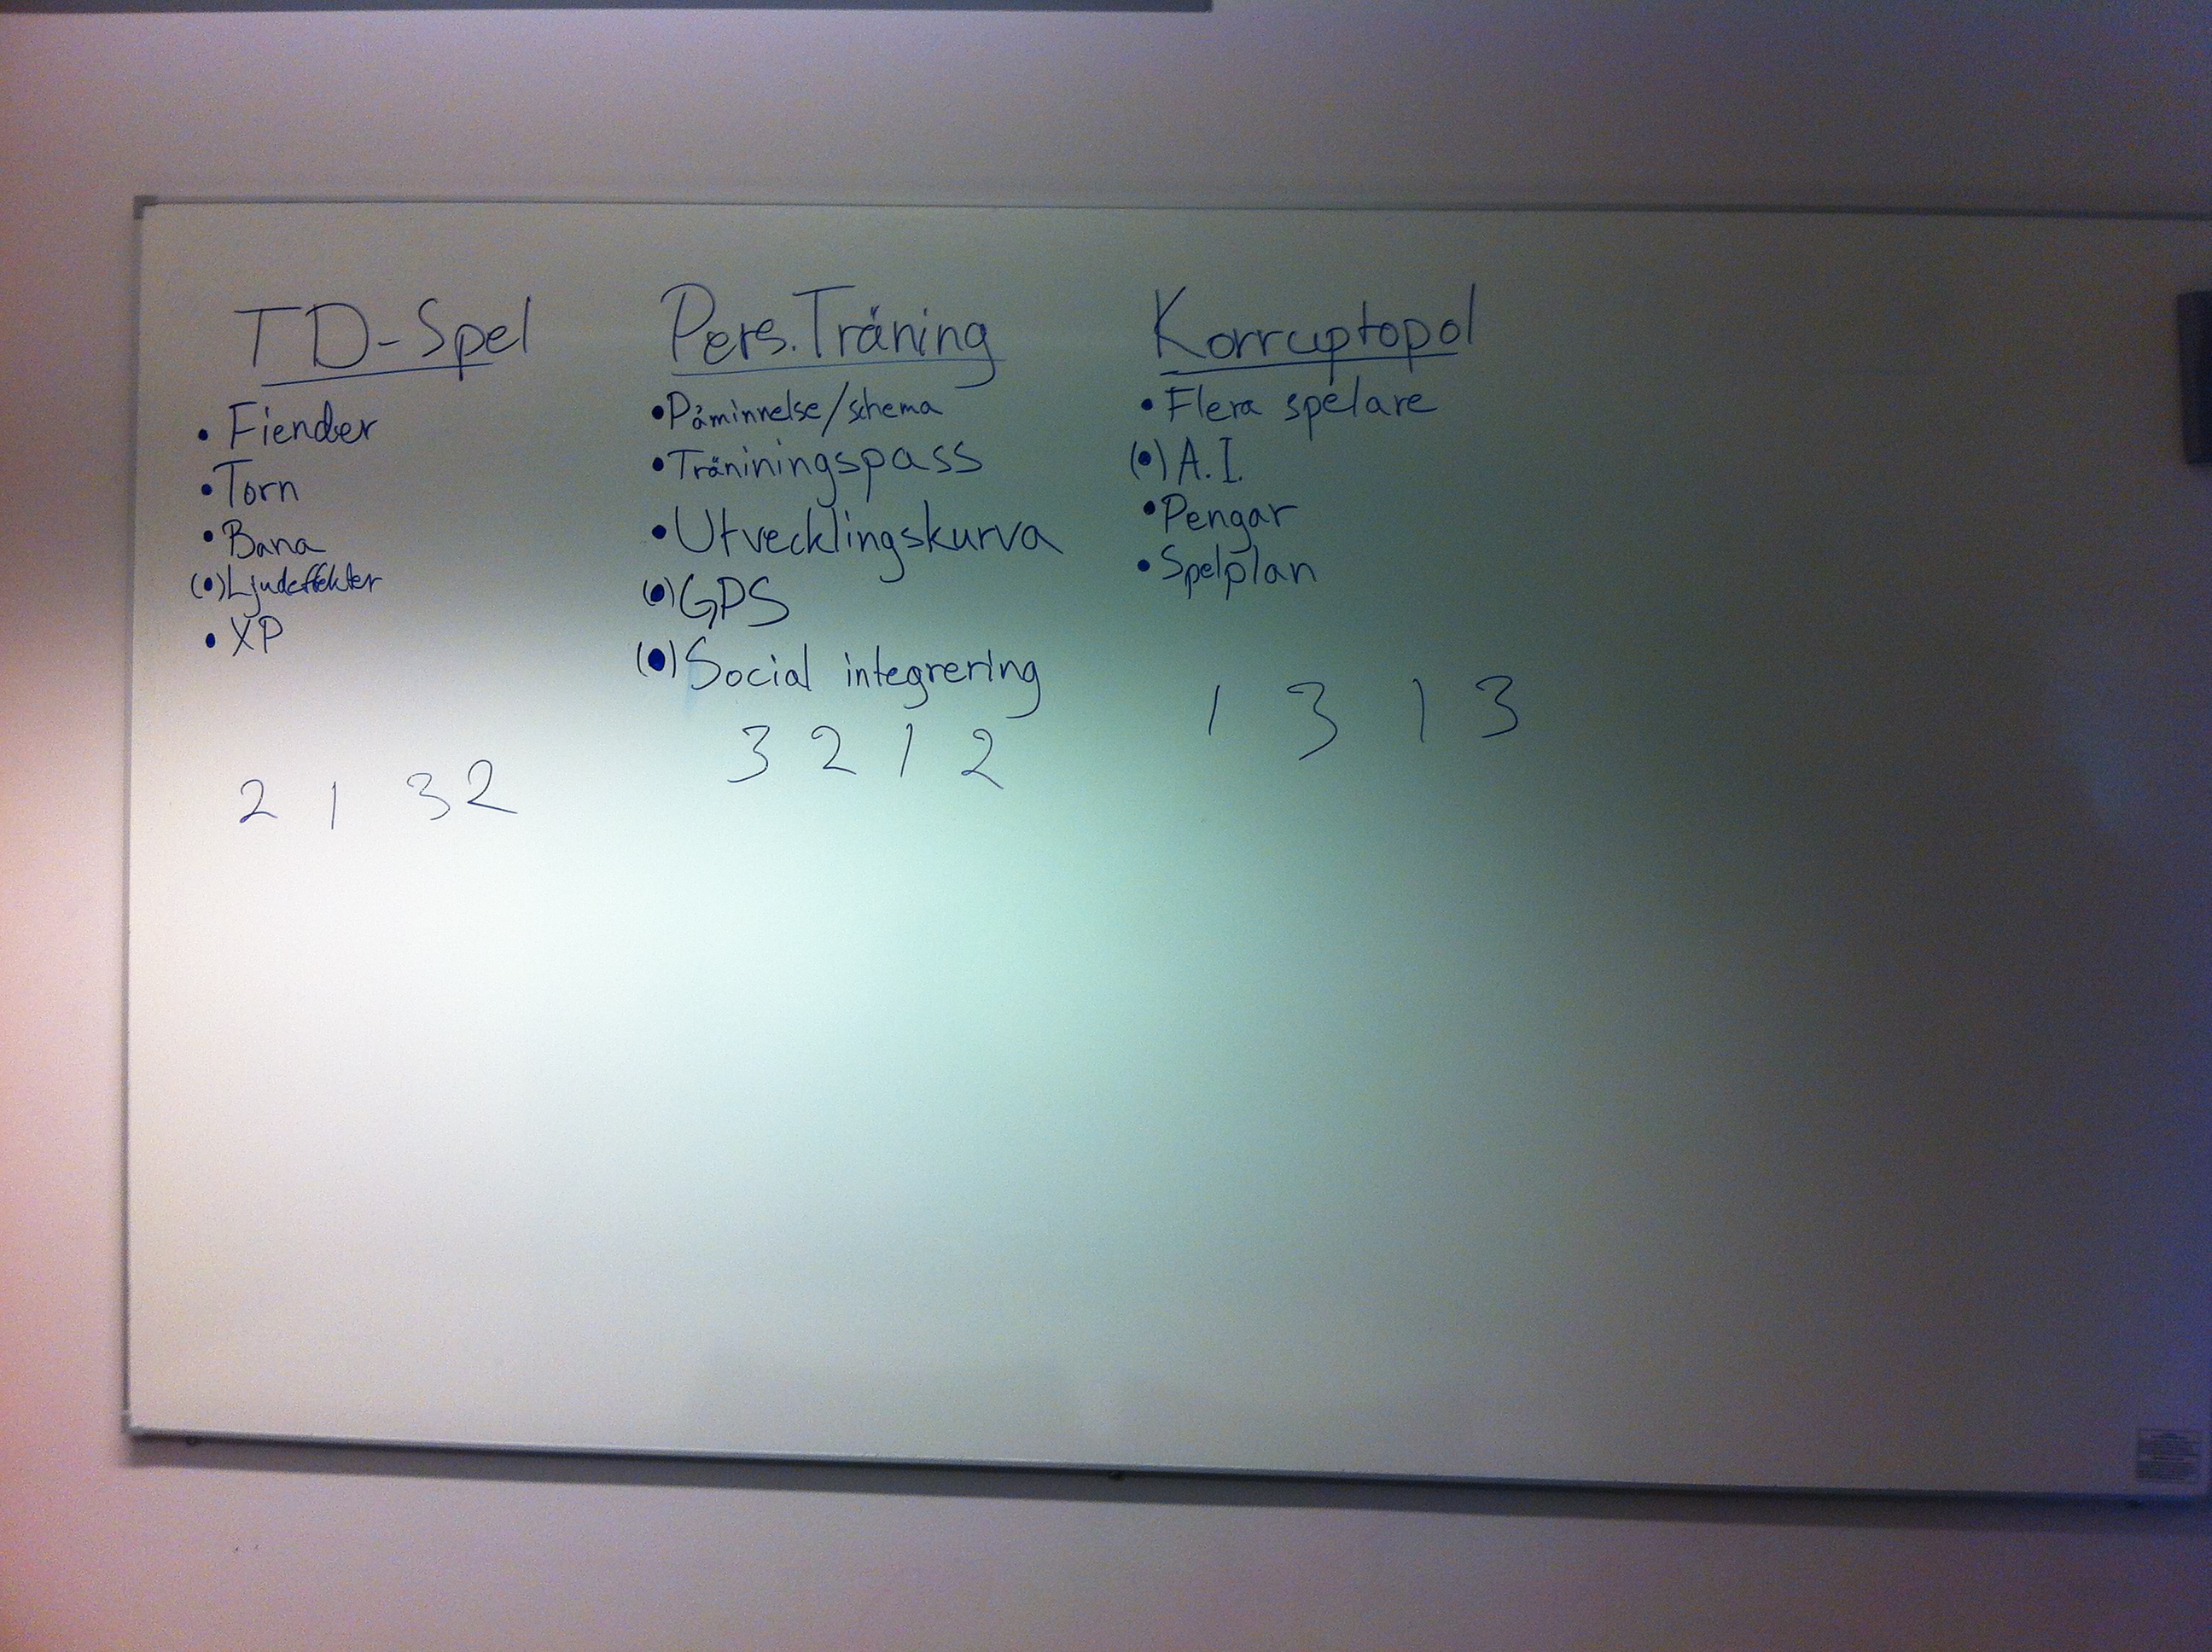 TD-Spel
• Fiender
• Torn
• Bana
(•) Ljudeffekter
• XP
2 1 3 2
Pers. Träning
• Påminnelse/schema
• Träniningspass
• Utvecklingskurva
(•) GPS
(•) Social integrering
3 2 1 2
Korruptopol
• Flera spelare
(•) A.I.
• Pengar
• Spelplan
1 3 1 3